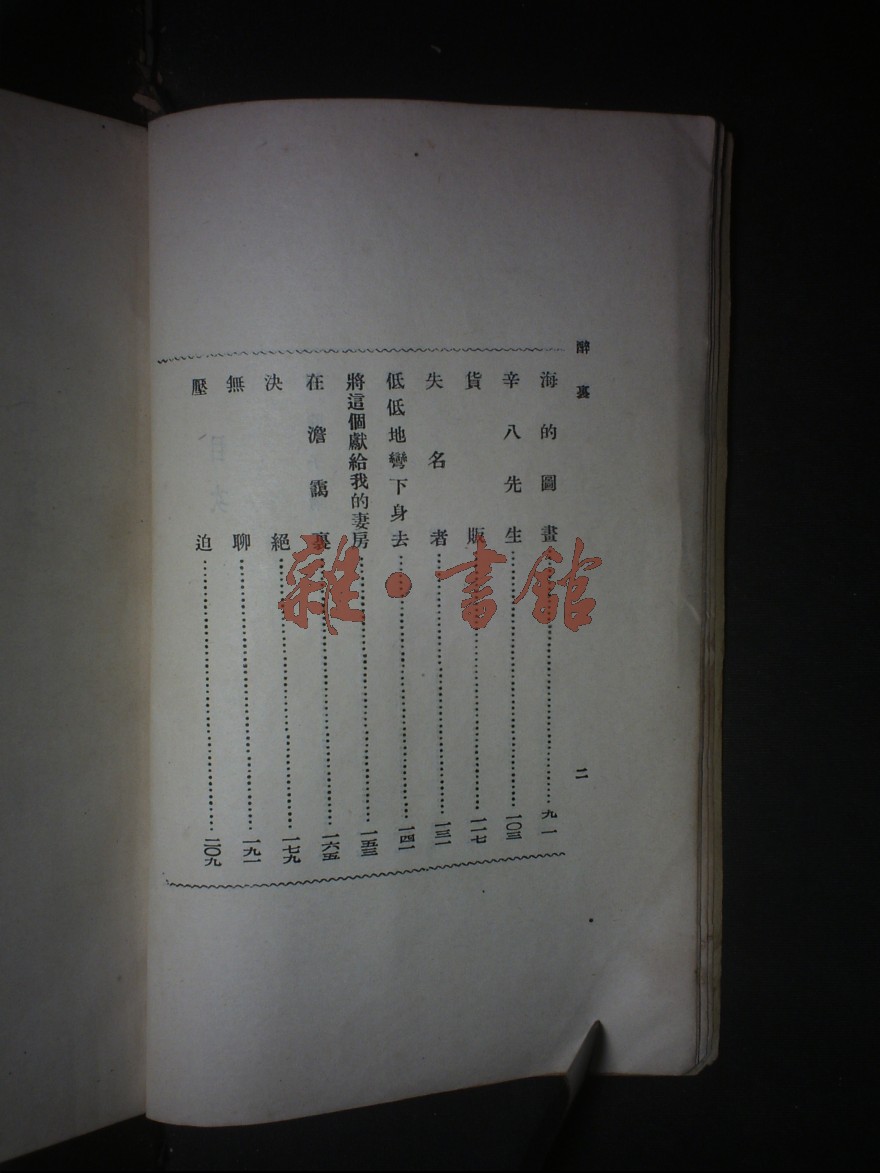 醉裏 二
海的圖畫……九一
辛八先生……一〇三
貨販……一一七
失名者……一三一
低低地彎下身去……一四一
將這個獻給我的妻房……一五三
在澹靄裏……一六五
決絕……一七九
無聊……一九一
壓迫……二〇九
雜·書館